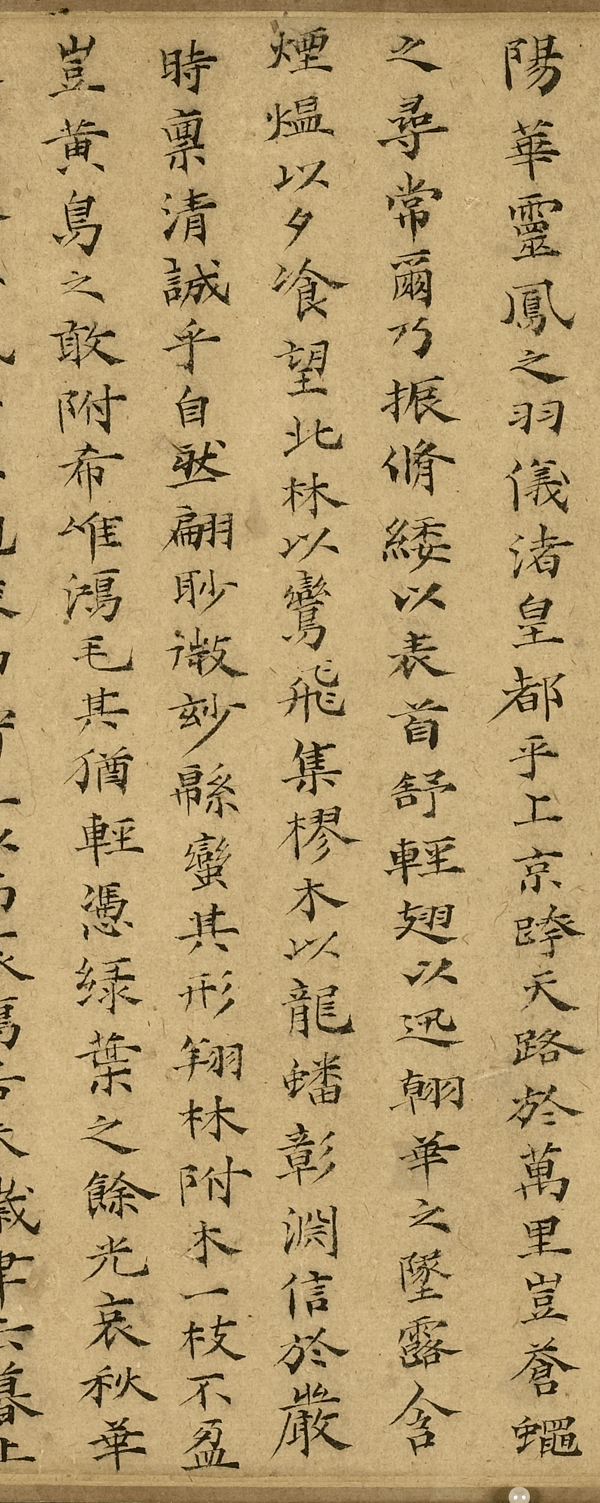 陽華靈鳳之羽儀渚皇都乎上京跨天路於萬里豈蒼蠅
之尋常爾乃振脩緌以表首舒輕翅以迅翰華之墜露含
煙熅以夕飡望北林以鸞飛集樛木以龍蟠彰淵信於嚴
時禀清誠乎自然翩眇微玅緜蠻其形翔林附木一枝不盈
豈黄鳥之敢附希唯鴻毛其猶輕憑緑葉之餘光哀秋華